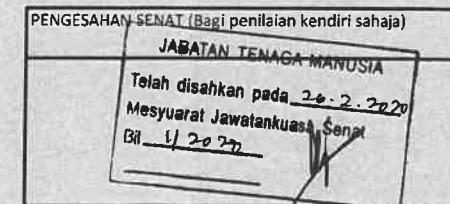 PENGESAHAN SENAT (Bagi penilaian kendiri sahaja)
JABATAN TENAGA MANUSIA
Telah disahkan pada 26.2.2020
Mesyuarat Jawatankuasa Senat
Bil 1/2020